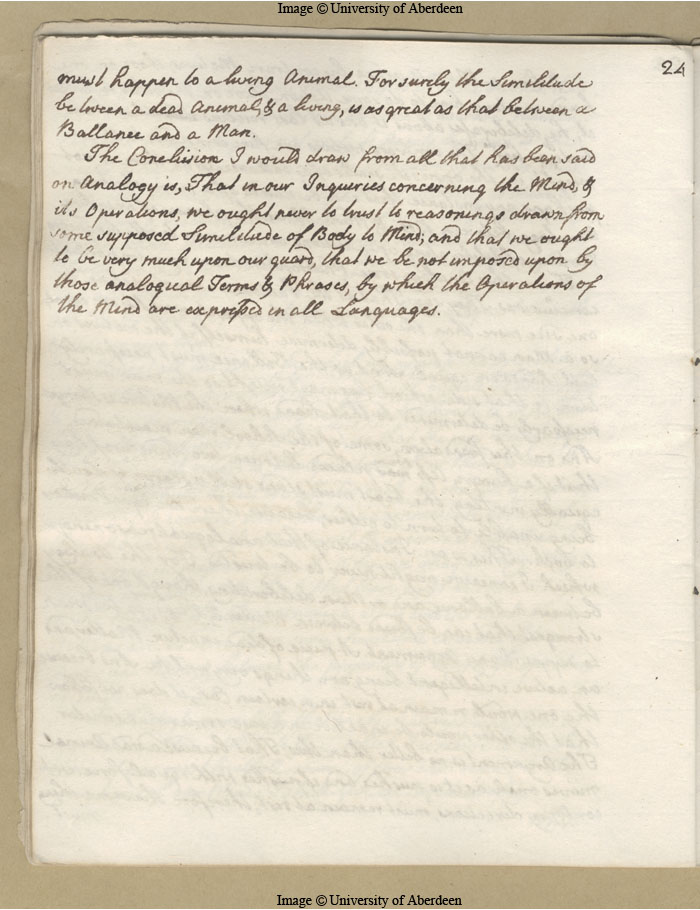 Image © University of Aberdeen
24
must happen to a living Animal. For surely the Similitude
between a dead Animal, & a living, is as great as that between a
Ballance and a Man.
The Conclusion I would draw from all that has been said
on Analogy is, That in our Inqueries concerning the Mind, &
its Operations, we ought never to trust to reasonings drawn from
some supposed Similitude of Body to Mind; and that we ought
to be very much upon our guard, that we be not imposed upon by
those analogical Terms & Phrases, by which the Operations of
the Mind are expressed in all Languages.
Image © University of Aberdeen